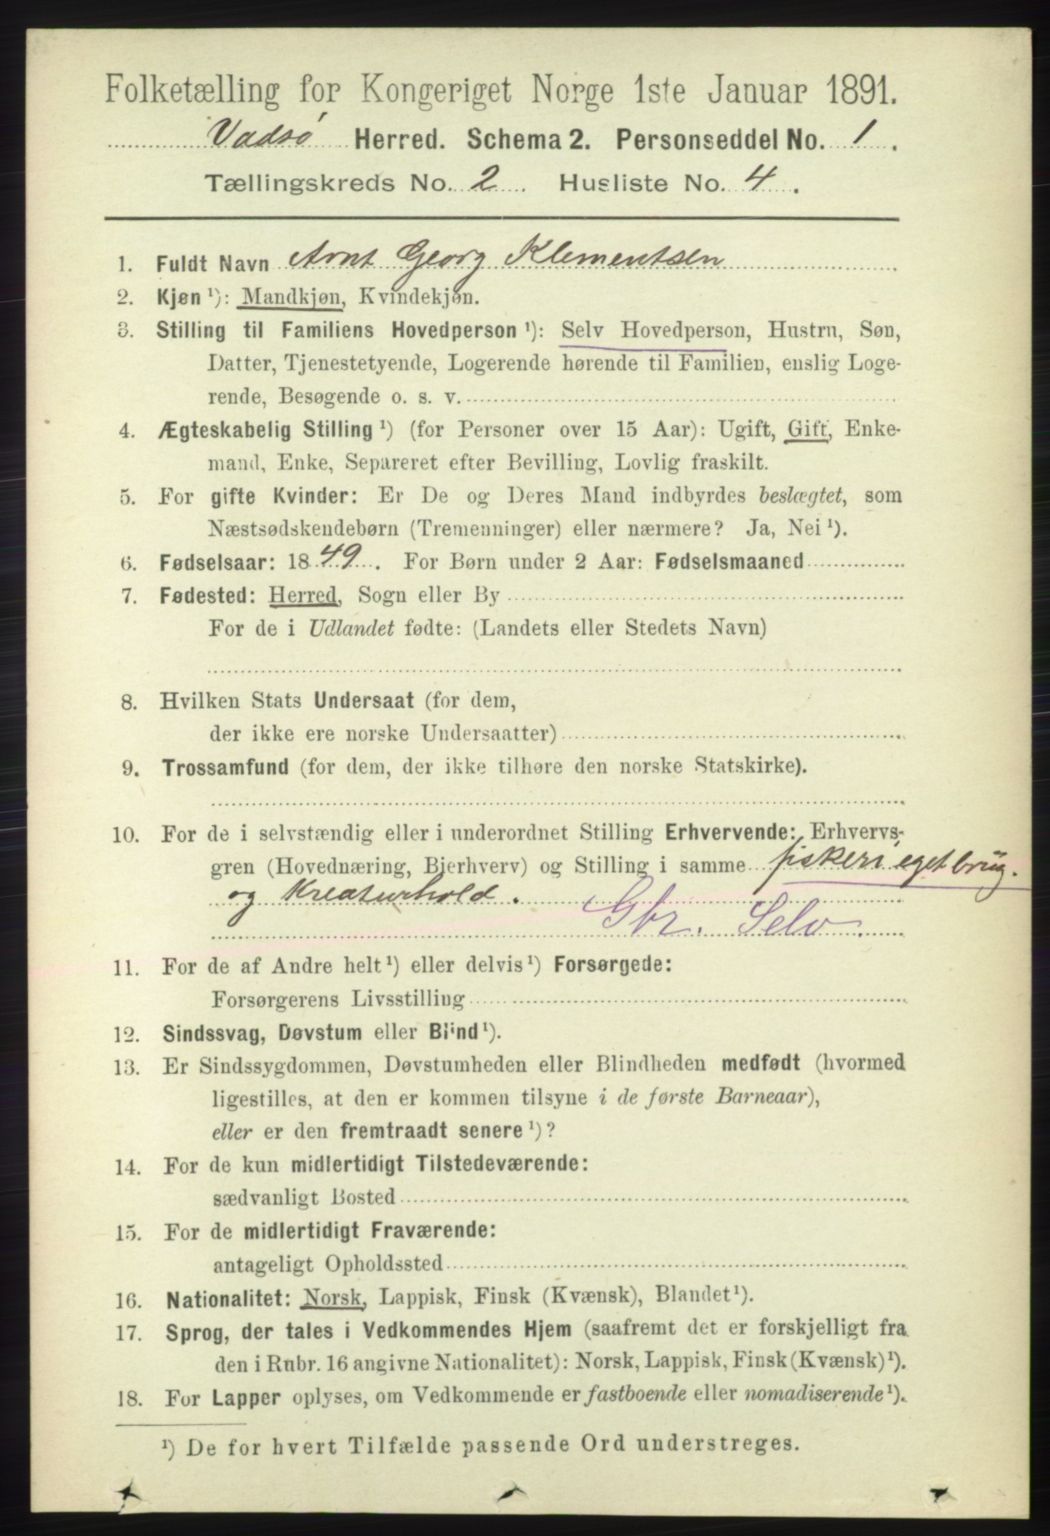 Folketælling for Kongeriget Norge 1ste Januar 1891.
Vadsø Herred. Schema 2. Personseddel No. 1.
Tællingskreds No. 2 Husliste No. 4.
1. Fuldt Navn Arnt Georg Klementsen
2. Kjøn ¹): Mandkjøn, Kvindekjøn.
3. Stilling til Familiens Hovedperson ¹): Selv Hovedperson, Hustru, Søn,
Datter, Tjenestetyende, Logerende hørende til Familien, enslig Loge-
rende, Besøgende o. s. v.
4. Ægteskabelig Stilling ¹) (for Personer over 15 Aar): Ugift, Gift, Enke-
mand, Enke, Separeret efter Bevilling, Lovlig fraskilt.
5. For gifte Kvinder: Er De og Deres Mand indbyrdes beslægtet, som
Næstsødskendebørn (Tremenninger) eller nærmere? Ja, Nei ¹).
6. Fødselsaar: 1849. For Børn under 2 Aar: Fødselsmaaned
7. Fødested: Herred, Sogn eller By
For de i Udlandet fødte: (Landets eller Stedets Navn)
8. Hvilken Stats Undersaat (for dem,
der ikke ere norske Undersaatter)
9. Trossamfund (for dem, der ikke tilhøre den norske Statskirke).
10. For de i selvstændig eller i underordnet Stilling Erhvervende: Erhvervs-
gren (Hovednæring, Bierhverv) og Stilling i samme fiskeri eget brug.
og Kreaturhold.
Gbr. Selv.
11. For de af Andre helt ¹) eller delvis ¹) Forsørgede:
Forsørgerens Livsstilling
12. Sindssvag, Døvstum eller Blind ¹).
13. Er Sindssygdommen, Døvstumheden eller Blindheden medfødt (hvormed
ligestilles, at den er kommen tilsyne i de første Barneaar),
eller er den fremtraadt senere ¹)?
14. For de kun midlertidigt Tilstedeværende:
sædvanligt Bosted
15. For de midlertidigt Fraværende:
antageligt Opholdssted
16. Nationalitet: Norsk, Lappisk, Finsk (Kvænsk), Blandet ¹).
17. Sprog, der tales i Vedkommendes Hjem (saafremt det er forskjelligt fra
den i Rubr. 16 angivne Nationalitet): Norsk, Lappisk, Finsk (Kvænsk) ¹).
18. For Lapper oplyses, om Vedkommende er fastboende eller nomadiserende ¹).
¹) De for hvert Tilfælde passende Ord understreges.